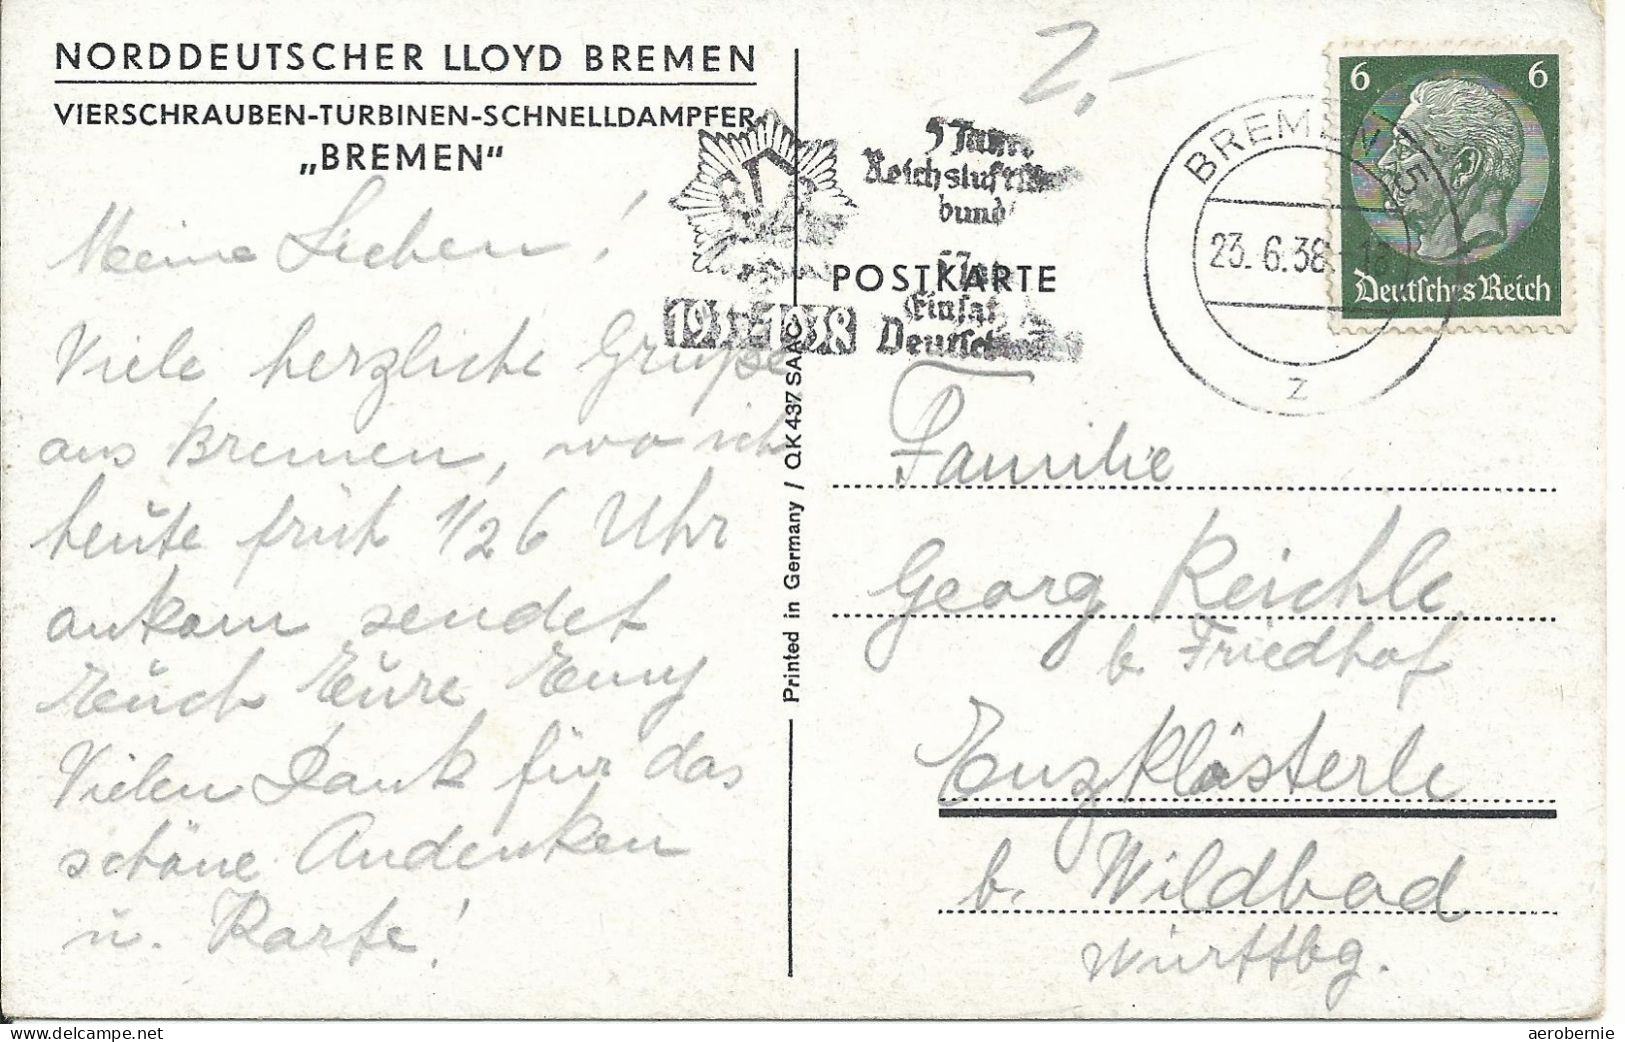 NORDDEUTSCHER LLOYD BREMEN
VIERSCHRAUBEN-TURBINEN-SCHNELLDAMPFER
„BREMEN"
Meine Lieben!
Viele herzliche Grüße
aus Bremen, wo ich
heute früh 1/2 6 Uhr
ankam sendet
Euch Eure Emy
Vielen Dank für das
schöne Andenken
u. Karte!
Printed in Germany / QK 437 SAAC
2,-
5 Jahre
Reichsluftschutz
bund
5 Jahre
Einsatz
1933-1938
POSTKARTE
BREMEN 5
23.6.38
z
6 6
Deutsches Reich
Familie
Georg Reichle
b. Friedhof
Enzklösterle
b. Wildbad
Württbg.
delcampe.net
aerobernie